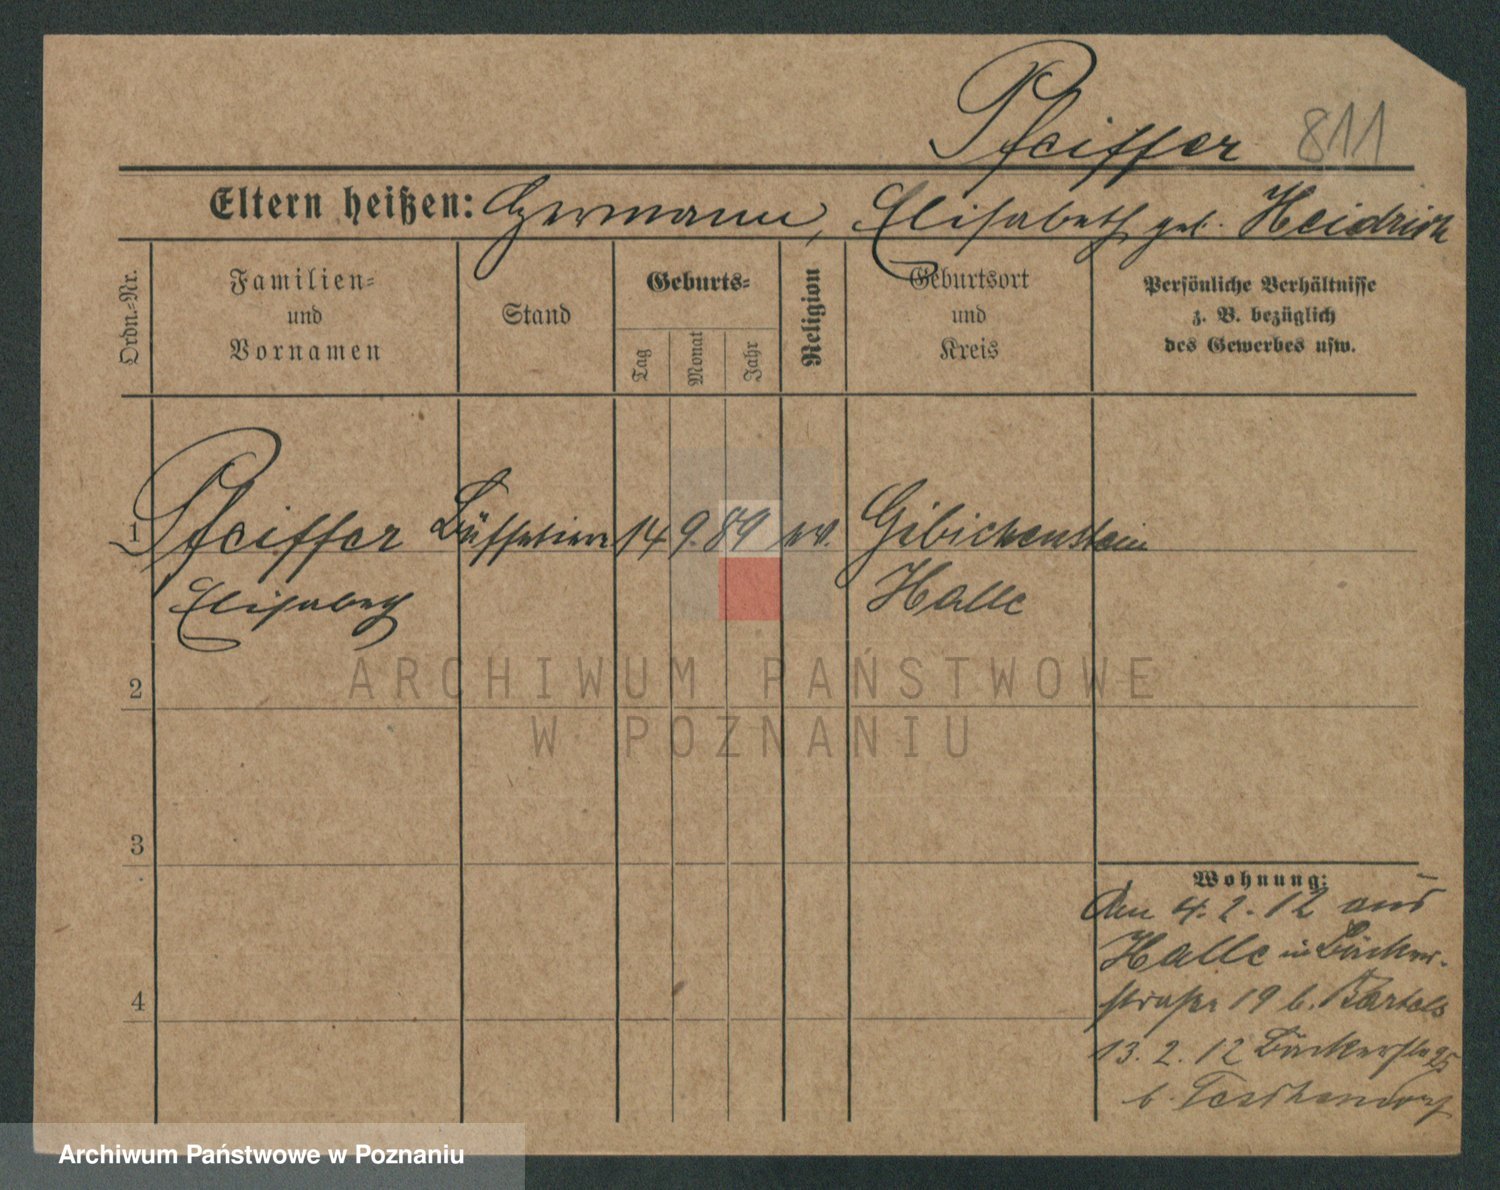 Pfeiffer 811
Eltern heißen: Hermann, Elisabeth geb. Heidrich
Ordn.-Nr.
Familien-
und
Vornamen
Stand
Geburts-
Tag
Monat
Jahr
Religion
Geburtsort
und
Kreis
Persönliche Verhältnisse
z. B. bezüglich
des Gewerbes usw.
1 Pfeiffer Büffetiere 14 9. 89 ev. Gibichenstein
Elisabeth Halle
2
3
4
Wohnung:
Am 4. 2. 12 aus
Halle in Bäcker-
straße 19 b. Bartels
13. 2. 12 Bäckerstr 25
b.
ARCHIWUM PAŃSTWOWE
W POZNANIU
Archiwum Państwowe w Poznaniu